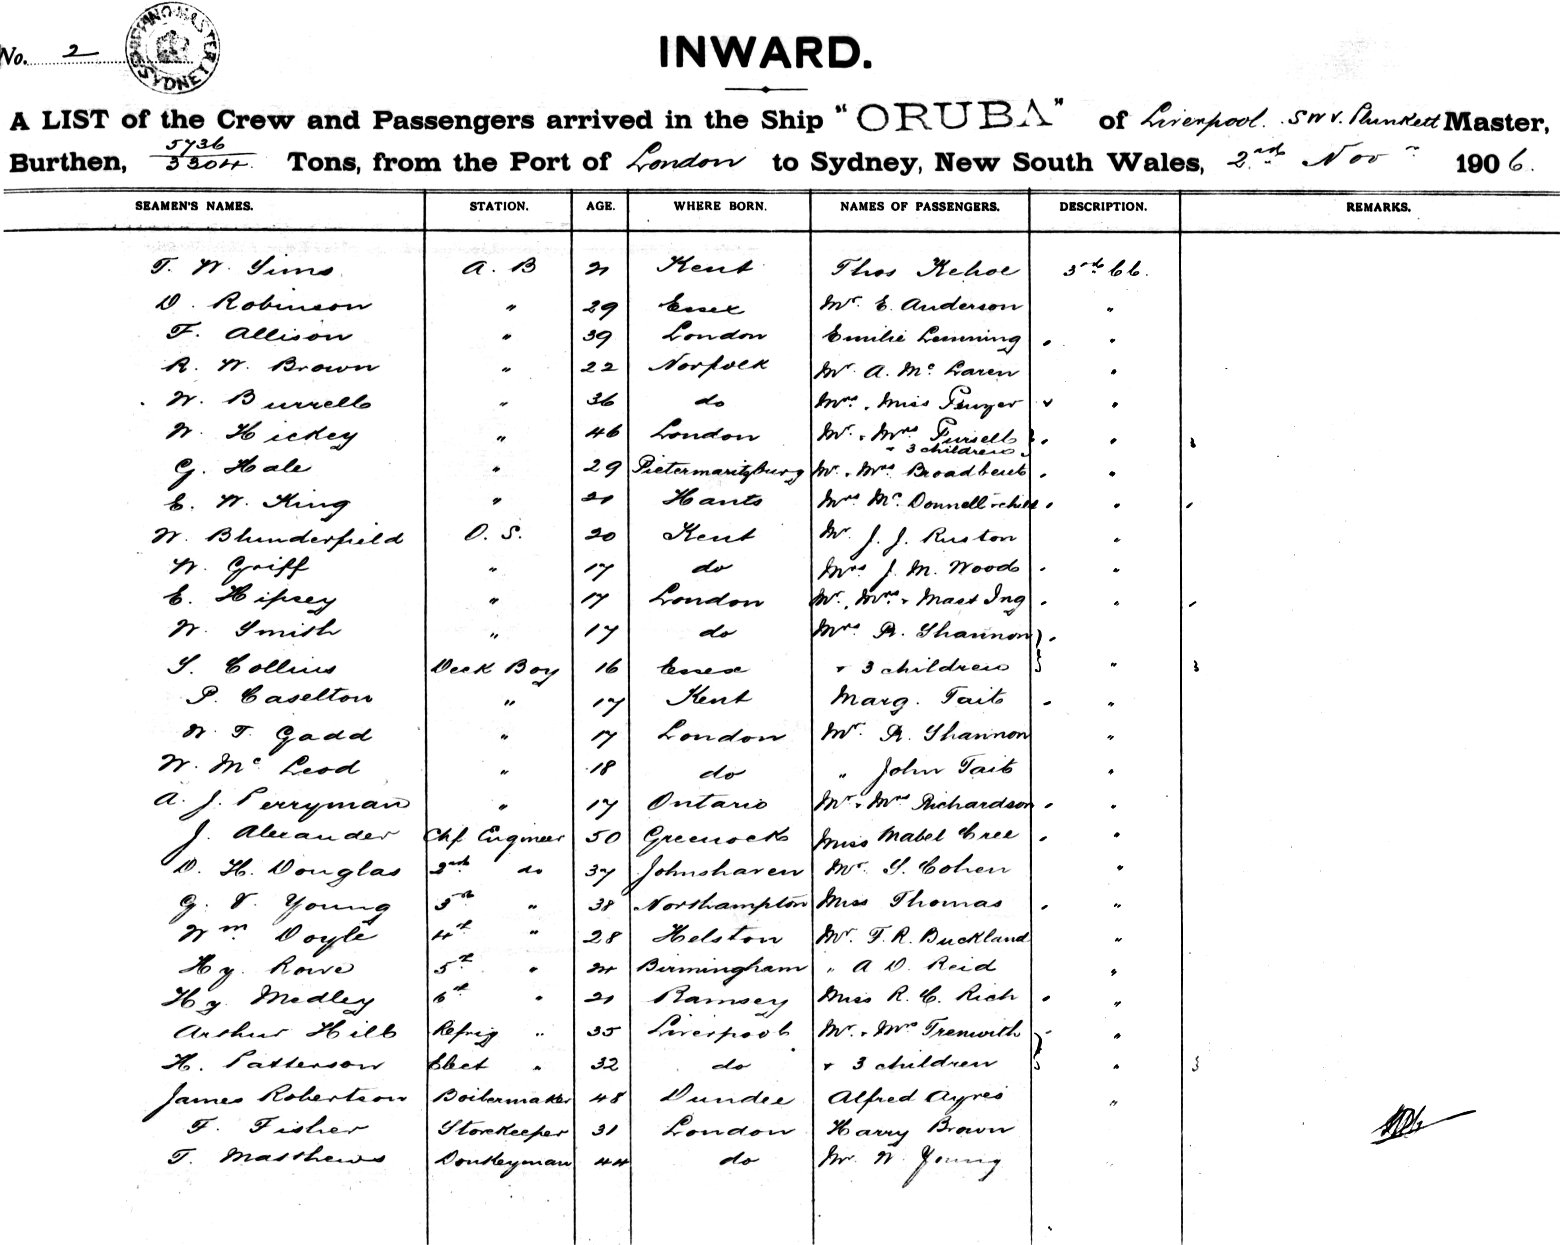 No. 2
SHIPPING MASTER SYDNEY
INWARD.
A LIST of the Crew and Passengers arrived in the Ship "ORUBA" of Liverpool. S W V. Plunkett Master,
Burthen, 5736/3304 Tons, from the Port of London to Sydney, New South Wales, 2nd Novr 1906.
SEAMEN'S NAMES. STATION. AGE. WHERE BORN. NAMES OF PASSENGERS. DESCRIPTION. REMARKS.
T. W. Sims A. B 21 Kent Thos Kehoe 3rd Cl.
D. Robinson " 29 Essex Mr. E. Anderson "
F. Allison " 39 London Emilie Lemming "
R. W. Brown " 22 Norfolk Mr. A. Mc Laren "
W. Burrell " 36 do Mrs. Miss "
W. Hickey " 46 London Mr. Mrs Pursell "
" 3 children
G. Hale " 29 Pietermaritzburg Mr. Mrs Broadbent "
E. W. King " 21 Hants Mrs Mc Donnell + child "
W. Blunderfield O. S. 20 Kent Mr. J. J. Ruston "
W. Griff " 17 do Mrs J. M. Wood "
E. Hipsey " 17 London Mr. Mrs + Mast Ing "
W. Smith " 17 do Mrs R. Shannon
S. Collins Deck Boy 16 Essex + 3 children "
P. Caselton " 17 Kent Marg. Tait "
W. T. Gadd " 17 London Mr. R. Shannon "
W. Mc Leod " 18 do " John Tait "
A. J. Perryman " 17 Ontario Mr. Mrs Richardson "
J. Alexander Chf Engineer 50 Greenock Miss Mabel Cree "
D. H. Douglas 2nd do 37 Johnshaven Mr. S. Cohen "
G. V. Young 3rd " 38 Northampton Miss Thomas "
Wm Doyle 4th " 28 Helston Mr. F. R. Buckland "
Hy. Rowe 5th " 24 Birmingham " A D. Reid "
Hy. Medley 6th " 21 Ramsey Miss R. C. Rich "
Arthur Hill Refrig " 35 Liverpool Mr. Mrs Trenwith "
H. Patterson Elect " 32 do + 3 children "
James Robertson Boilermaker 48 Dundee Alfred Ayres "
F. Fisher Storekeeper 31 London Harry Brown
T. Matthews Donkeyman 44 do Mr. W. Young